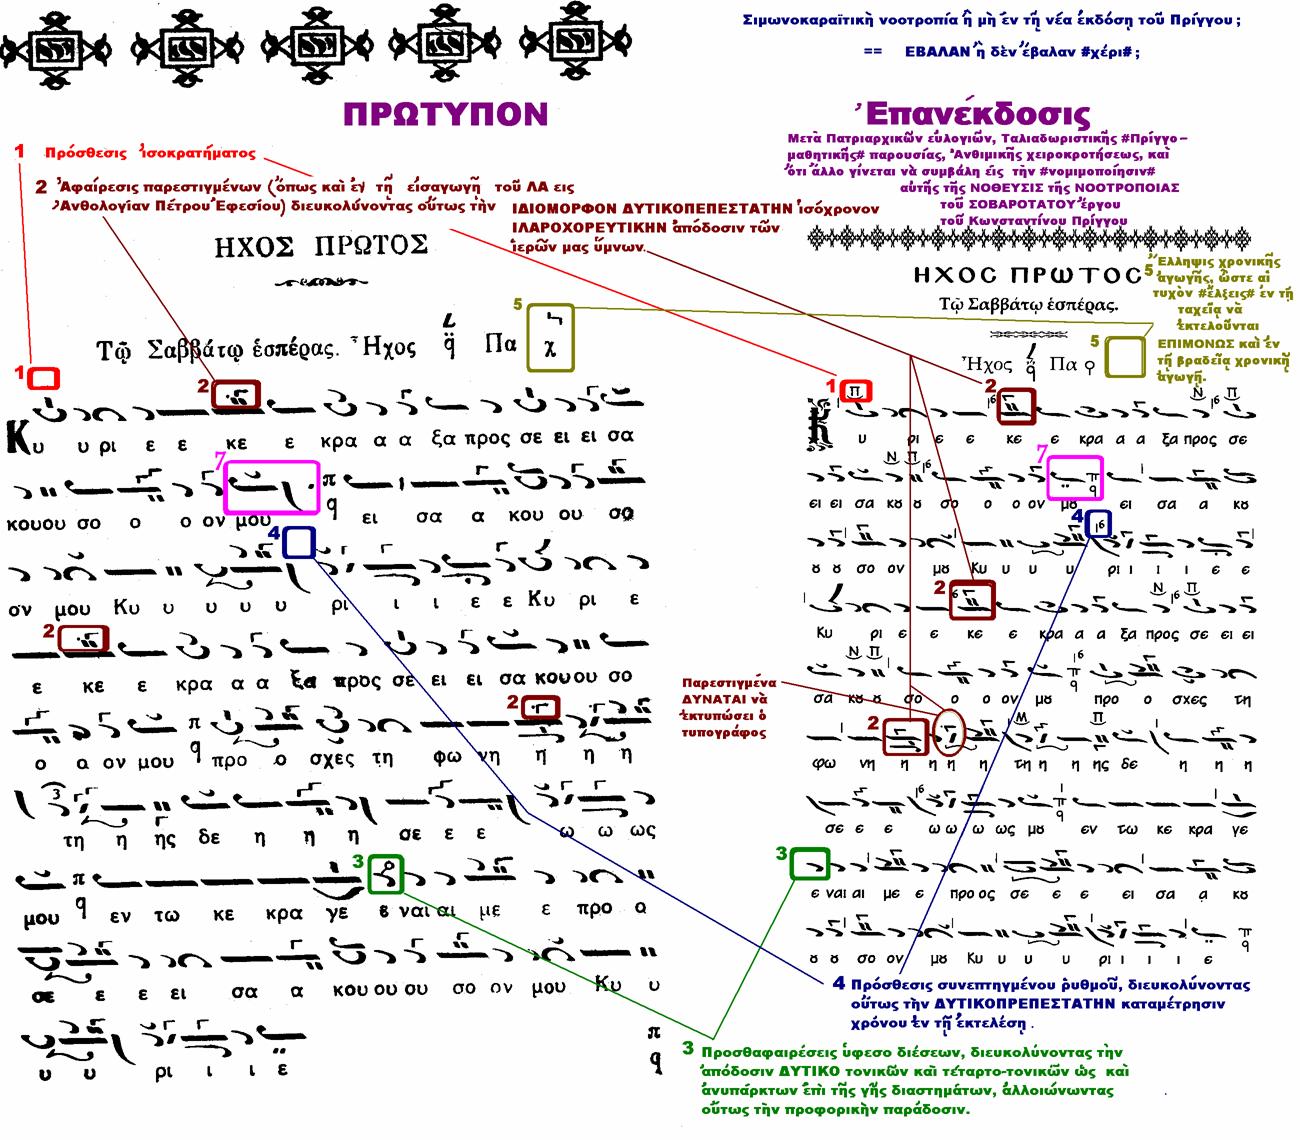 Σιμωνοκαραϊτικὴ νοοτροπία ἢ μὴ ἐν τῇ νέα ἐκδόση τοῦ Πρίγγου ;
== ΕΒΑΛΑΝ ἢ δὲν ἔβαλαν #χέρι# ;
ΠΡΩΤΥΠΟΝ
Ἐπανέκδοσις
Μετὰ Πατριαρχικῶν εὐλογιῶν, Ταλιαδωριστικῆς #Πρίγγο–
μαθητικῆς# παρουσίας, Ἀνθιμικῆς χειροκροτήσεως, καὶ
ὅτι ἄλλο γίνεται νὰ συμβάλη εἰς τὴν #νομιμοποίησιν#
αὐτῆς τῆς ΝΟΘΕΥΣΙΣ τῆς ΝΟΟΤΡΟΠΟΙΑΣ
τοῦ ΣΟΒΑΡΟΤΑΤΟΥ ἔργου
τοῦ Κωνσταντίνου Πρίγγου
1 Πρόσθεσις ἰσοκρατήματος
2 Ἀφαίρεσις παρεστιγμένων (ὅπως καὶ ἐν τῇ εἰσαγωγῇ τοῦ ΛΑ εις
Ἀνθολογίαν Πέτρου Ἐφεσίου) διευκολύνοντας οὕτως τὴν
ΙΔΙΟΜΟΡΦΟΝ ΔΥΤΙΚΟΠΕΠΕΣΤΑΤΗΝ ἰσόχρονον
ΙΛΑΡΟΧΟΡΕΥΤΙΚΗΝ ἀπόδοσιν τῶν
ἱερῶν μας ὕμνων.
ΗΧΟΣ ΠΡΩΤΟΣ
Τῷ Σαββάτῳ ἑσπέρας. Ἦχος q̈ Πα χ
5
1
2
Κυ υ ρι ε ε κε ε κρα α α ξα προς σε ει ει σα
7
π
q
κουου σο ο ο ον μου ει σα α κου ου σο
4
ον μου Κυ υ υ υ υ ρι ι ι ε ε Κυ ρι ε
2
ε κε ε κρα α α ξα προς σε ει ει σα κουου σο
2
π
q
ο α ον μου προ ο σχες τη φω νη η η η
3
τη η ης δε η η η σε ε ε ω ω ως
3
π
q
μου εν τω κε κρα γε ε ναι αι με ε προ ο
σε ε ε ει σα α κου ου ου σο ον μου Κυ υ
π
q
υ υ ρι ι ι ε
ΗΧΟC ΠΡΩΤΟC
Τῷ Σαββάτῳ ἑσπέρας.
Ἦχος q̈ Πα ϙ
5 Ἔλληψις χρονικῆς
ἀγωγῆς, ὥστε αἱ
τυχὸν #ἕλξεις# ἐν τῇ
ταχεῖα νὰ
ἐκτελοῦνται
5 ΕΠΙΜΟΝΩΣ καὶ ἐν
τῇ βραδεῖα χρονικῇ
ἀγωγῇ.
1 Π 2 16 Ν 16 Π
Κ υ ρι ε ε κε ε κρα α α ξα προς σε
Ν Π 16 7 π q
ει ει σα κȣ ȣ σο ο ο ον μȣ ει σα α κȣ
4 16
ȣ ȣ σο ον μȣ Κυ υ υ υ ρι ι ι ε ε
2 6 Ν 16 Π
Κυ ρι ε ε κε ε κρα α α ξα προς σε ει ει
Ν Π 16 π q
σα κȣ ȣ σο ο ο ον μȣ προ ο σχες τη
Παρεστιγμένα
ΔΥΝΑΤΑΙ νὰ
ἐκτυπώσει ὁ
τυπογράφος
2 Μ Π
φω νη η η η η τη η η ης δε η η η
16 π q
σε ε ε ω ω ω ως μȣ εν τω κε κρα γε
3
ε ναι αι με ε προ ος σε ε ε ει σα α κȣ
π
q
ȣ σο ον μȣ Κυ υ υ υ ρι ι ι ε
4 Πρόσθεσις συνεπτηγμένου ῥυθμοῦ, διευκολύνοντας
οὕτως τὴν ΔΥΤΙΚΟΠΡΕΠΕΣΤΑΤΗΝ καταμέτρησιν
χρόνου ἐν τῇ ἐκτελέση .
3 Προσθαφαιρέσεις ὑφεσο διέσεων, διευκολύνοντας τὴν
ἀπόδοσιν ΔΥΤΙΚΟ τονικῶν καὶ τέταρτο-τονικῶν ὡς καὶ
ἀνυπάρκτων ἐπὶ τῆς γῆς διαστημάτων, ἀλλοιώνωντας
οὕτως τὴν προφορικὴν παράδοσιν.